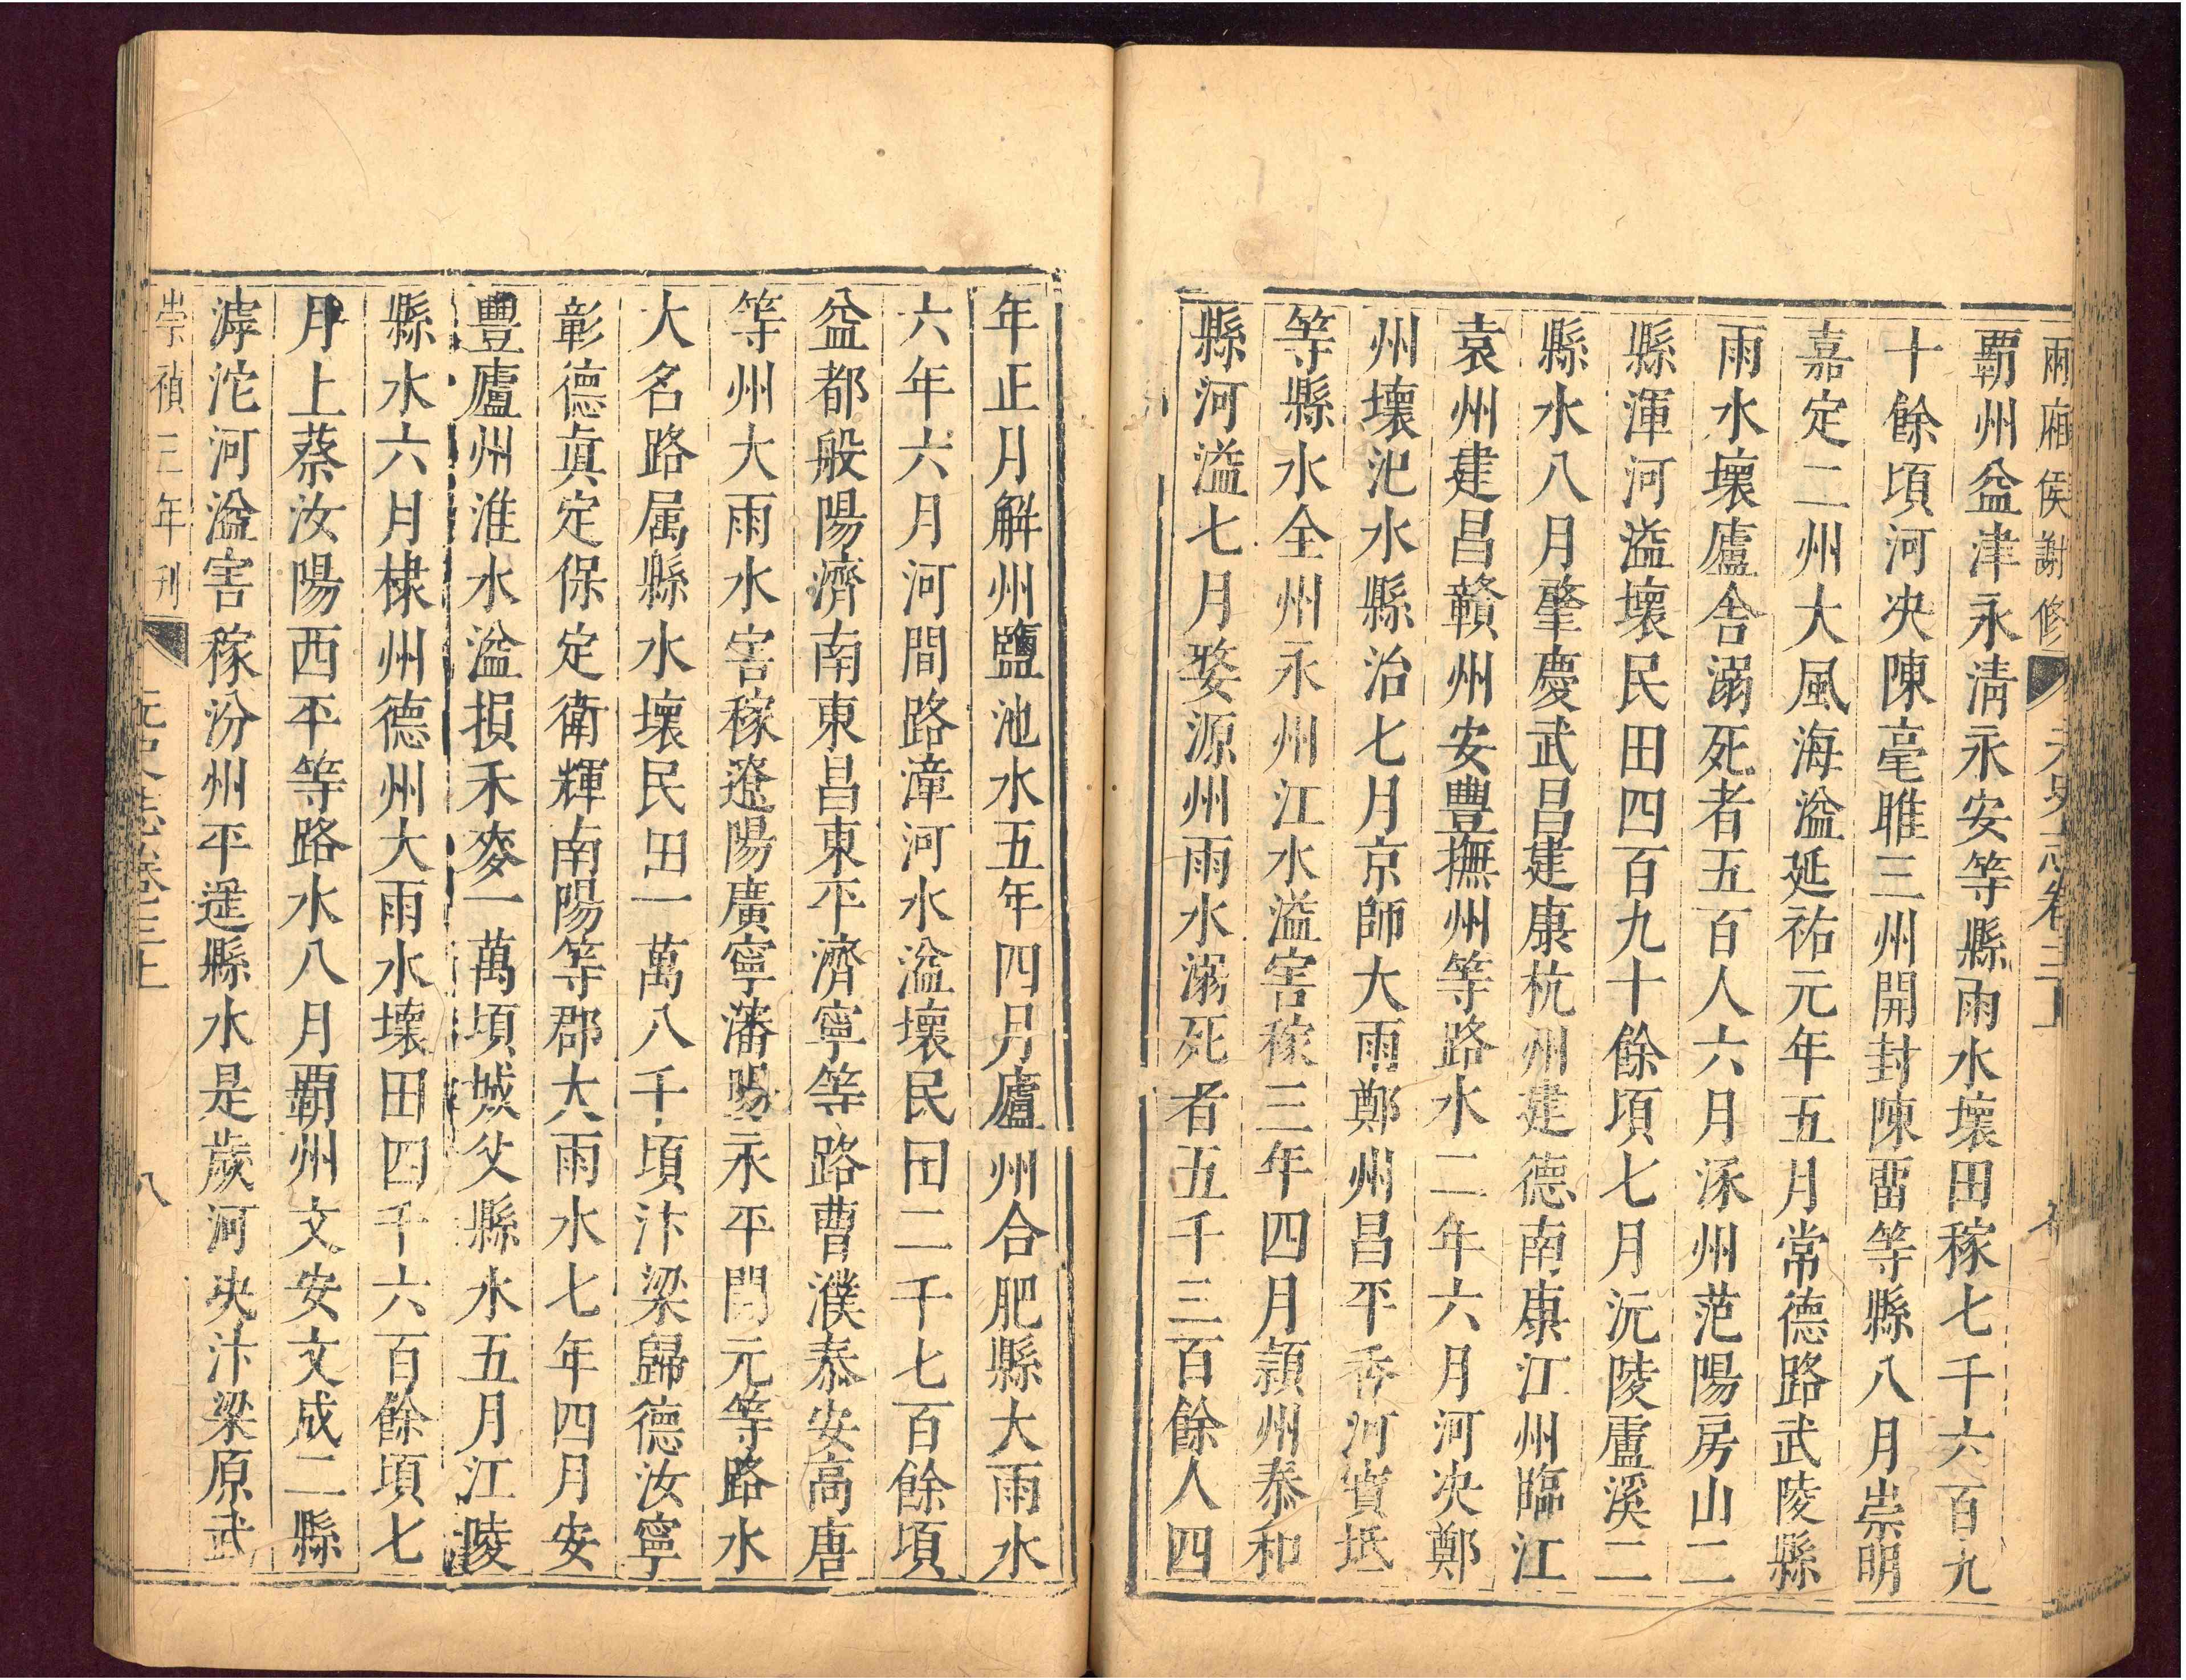 兩廂侯謝修 元史志卷三上 七
覇州益津永清永安等縣雨水壞田稼七千六百九
十餘頃河决陳亳睢三州開封陳畱等縣八月崇明
嘉定二州大風海溢延祐元年五月常德路武陵縣
雨水壞廬舍溺死者五百人六月涿州范陽房山二
縣渾河溢壞民田四百九十餘頃七月沅陵盧溪二
縣水八月肇慶武昌建康杭州建德南康江州臨江
袁州建昌贛州安豐撫州等路水二年六月河决鄭
州壞汜水縣治七月京師大雨鄭州昌平香河寶坻
等縣水全州永州江水溢害稼三年四月潁州泰和
縣河溢七月婺源州雨水溺死者五千三百餘人四
年正月解州鹽池水五年四月廬州合肥縣大雨水
六年六月河間路漳河水溢壞民田二千七百餘頃
益都般陽濟南東昌東平濟寧等路曹濮泰安高唐
等州大雨水害稼遼陽廣寧瀋陽永平開元等路水
大名路属縣水壞民田一萬八千頃汴梁歸德汝寧
彰德眞定保定衛輝南陽等郡大雨水七年四月安
豐廬州淮水溢損禾麥一萬頃城父縣水五月江陵
縣水六月棣州德州大雨水壞田四千六百餘頃七
月上蔡汝陽西平等路水八月覇州文安文成二縣
滹沱河溢害稼汾州平遥縣水是歲河决汴梁原武
崇禎三年刊 元史志卷三上 八